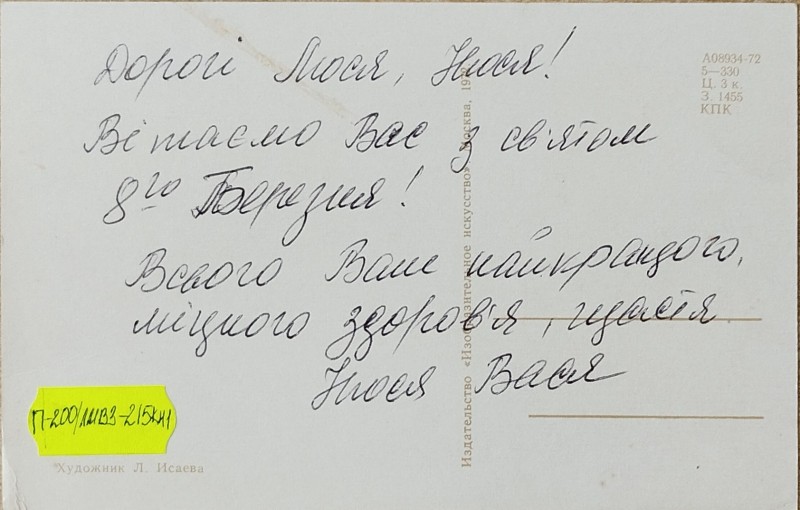 Дорогі Люся, Нюся!
Вітаємо Вас з св'ятом
8го Березня!
Всього Вам найкращого,
міцного здоров'я, щастя
Нюся Вася
А08934-72
5—330
Ц. 3 к.
З. 1455
КПК
Издательство «Изобразительное искусство» Москва, 197
Художник Л. Исаева